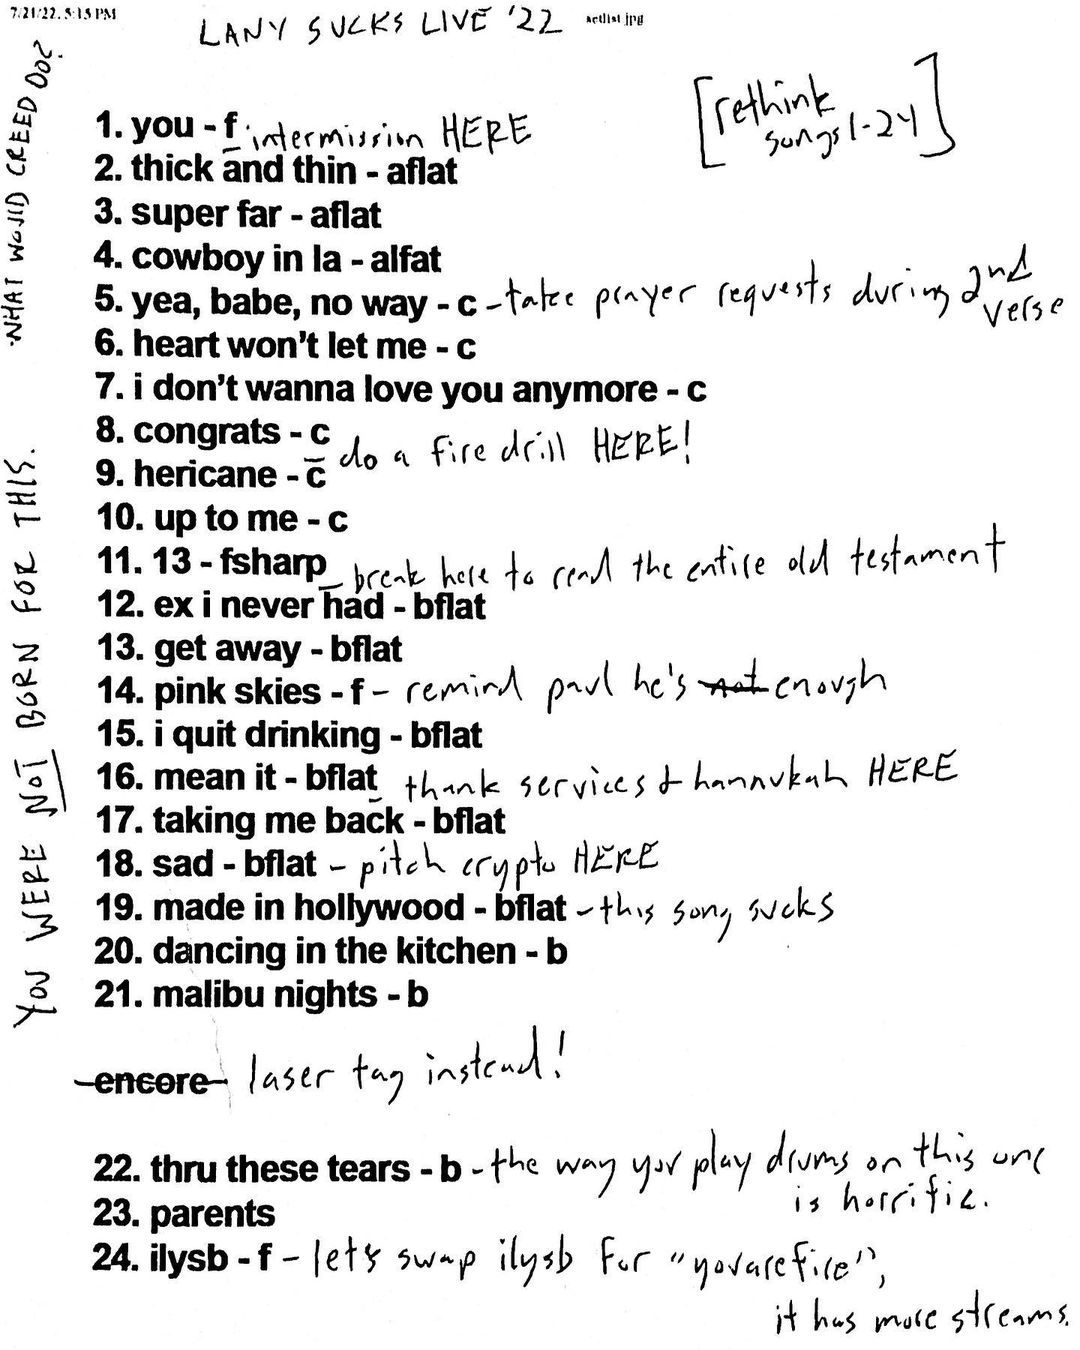 7/21/22, 5:15 PM
LANY SUCKS LIVE '22
setlist.jpg
[rethink
songs 1-24]
1. you - f intermission HERE
2. thick and thin - aflat
3. super far - aflat
4. cowboy in la - alfat
5. yea, babe, no way - c - take prayer requests during 2nd
verse
6. heart won't let me - c
7. i don't wanna love you anymore - c
8. congrats - c
do a fire drill HERE!
9. hericane - c
10. up to me - c
11. 13 - fsharp
break here to read the entire old testament
12. ex i never had - bflat
13. get away - bflat
14. pink skies - f - remind paul he's not enough
15. i quit drinking - bflat
16. mean it - bflat
thank services & hannukah HERE
17. taking me back - bflat
18. sad - bflat - pitch crypto HERE
19. made in hollywood - bflat - this song sucks
20. dancing in the kitchen - b
21. malibu nights - b
-encore- laser tag instead!
22. thru these tears - b - the way you play drums on this one
is horrific.
23. parents
24. ilysb - f - let's swap ilysb for "youarefire",
it has more streams.
WHAT WOULD CREED DO?
YOU WERE NOT BORN FOR THIS.